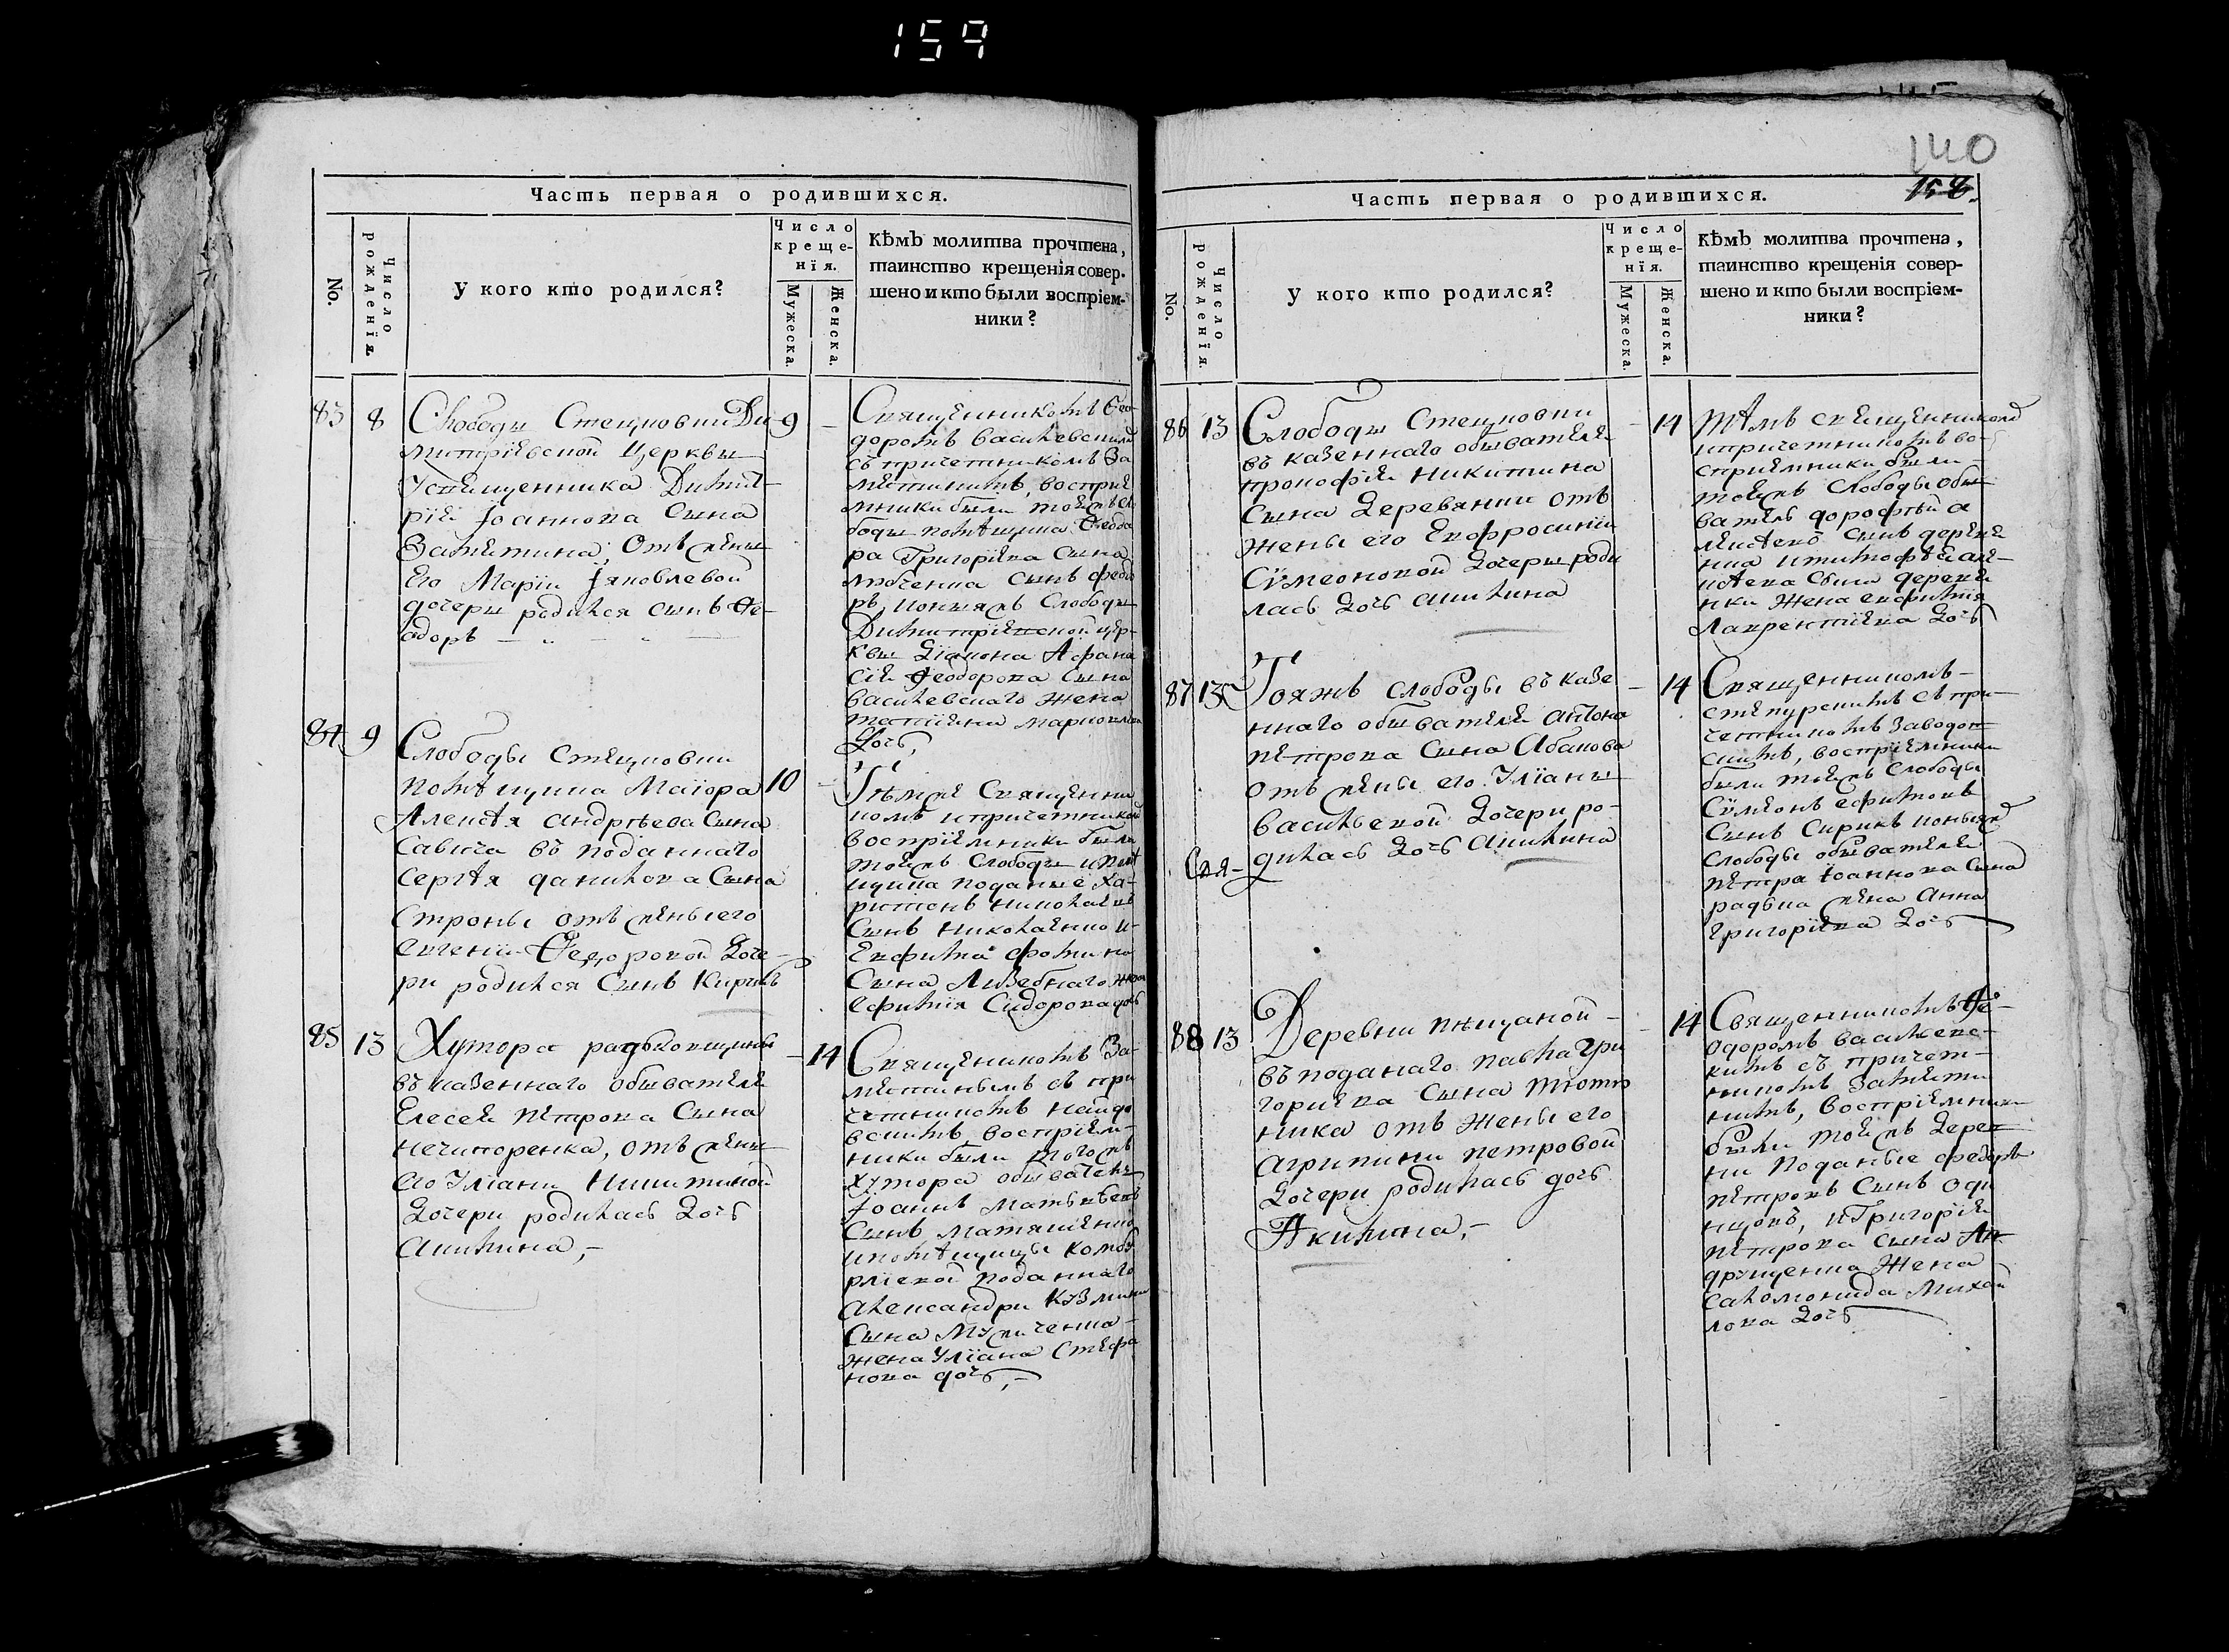 159
140
158.
Часть первая о родившихся.
No.
Число рожденїя.
У кого кто родился?
Число
креще-
нїя.
Мужеска.
Женска.
Кѣмъ молитва прочтена,
таинство крещенія совер-
шено и кто были воспріем-
ники?
83 8
Слободы Стецковки Ди
митріевской Церквы
Священника Димит-
рія Іоаннова Сына
Замятина, Отъ жены
Его Маріи Іяковлевой
дочеры родился сынъ Ѳе-
одоръ
9 -
Священникомъ Ѳео-
доромъ Василевскимъ
съ причетникомъ За
мятинимъ, воспріе
мники были тоей жъ сло
боды помѣщика Ѳеодо
ра Григоріева Сына
сынъ Федо
ръ, и оныя жъ Слободы
Димитріевской цер-
квы Діакона Афана
сія Ѳеодорова Сына
Василевского Жена
дочь,
84 9
Слободы Стецковки
помѣщика Маіора
Алексѣя Андрѣева Сына
Савича въ поданнаго
Сергѣя Данилова Сына
Строны отъ жены его
Евгеніи Ѳедоровой Доче-
ри родился Сынъ Кирикъ
10 -
Тѣмже Священни
комъ и причетникомъ
воспріемники были
тоей жъ Слободы и помѣ
щика поданые Ха-
ритонъ Николаевъ
Сынъ Николаенко и
Евфима Фомина
Сына Жена
Ефимія Сидорова дочь
85 13
Хутора радьковщины
въ казеннаго обывателя
Елесея Петрова Сына
Нечипоренка, отъ жены
его Уліаны Никитиной
Дочери родилась Дочь
Акилина,-
- 14
Священникомъ За-
мятинымъ съ при
четникомъ
воспріем-
ники были того жъ
Хутора обыватель
Іоаннъ Матьвѣевъ
Сынъ Матяшенко
и помѣщицы Комбу
рліевой поданнаго
Александри Кузмина
Сына
жена Уліана Стефа
нова дочь,-
Часть первая о родившихся.
No.
Число рожденїя.
У кого кто родился?
Число
креще-
нїя.
Мужеска.
Женска.
Кѣмъ молитва прочтена,
таинство крещенія совер-
шено и кто были воспріем-
ники?
86 13
Слободы Стецковки
въ казеннаго обывателя
Прокофія Никитина
Сына Деревянки отъ
жены его Евфросиніи
Сѵмеоновой Дочеры роди
лась Дочь Акилина
- 14
Тѣмъ Священникомъ
и причетникомъ во-
спріемники были
тоей жъ Слободы обы
ватель Дорофѣй а
лексѣевъ Сынъ деревя
нка и Тимофѣя але-
ксѣева Сына деревя
нки Жена евфимія
Лаврентіева Дочь
87 13
Тояжъ слободы въ казе
ннаго обывателя Антона
Петрова Сына Абакова
отъ жены его Уліаны
Васильевой Дочери ро-
дилась Дочь Акилина
- 14
Священникомъ -
съ при-
четникомъ Заводов
скимъ, воспріемники
были тоей жъ Слободы
Сѵмеонъ Ефимовъ
Сынъ Сирикъ и оныя жъ
слободы обывателя
Петра Іоаннова Сына
радька жена Анна
Григоріева Дочь
Свя-
88 13
Деревни Пѣщаной -
въ поданаго Павла Гри
горіева Сына Тютю
ника отъ Жены его
Агрипини Петровой
Дочери родилась дочь
Акилина,-
- 14
Священникомъ Ѳе-
одоромъ Василевс-
кимъ съ причет-
никомъ Замяти
нимъ, Воспріемники
были тоей жъ Дерев
ни Поданые Федоръ
Петровъ Сынъ Оди
нцовъ, и Григорія
Петрова Сына Ан
друщенка Жена
Саломонида Михай
лова Дочь